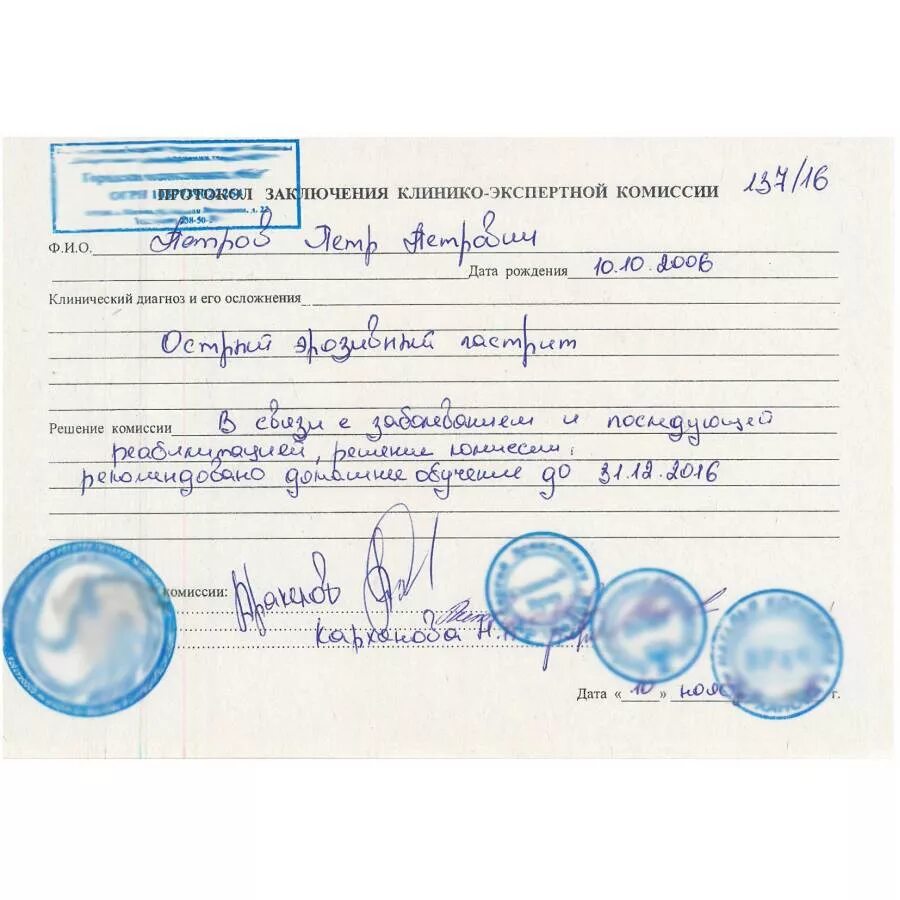 ОГРН
ПРОТОКОЛ ЗАКЛЮЧЕНИЯ КЛИНИКО-ЭКСПЕРТНОЙ КОМИССИИ 137/16
Ф.И.О. Петров Петр Петрович
Дата рождения 10.10.2006
Клинический диагноз и его осложнения
Острый эрозивный гастрит
Решение комиссии В связи с заболеванием и последующей
реабилитацией, решение комиссии:
рекомендовано домашнее обучение до 31.12.2016
комиссии:
Карханова Н.
Дата « 10 » нояб г.